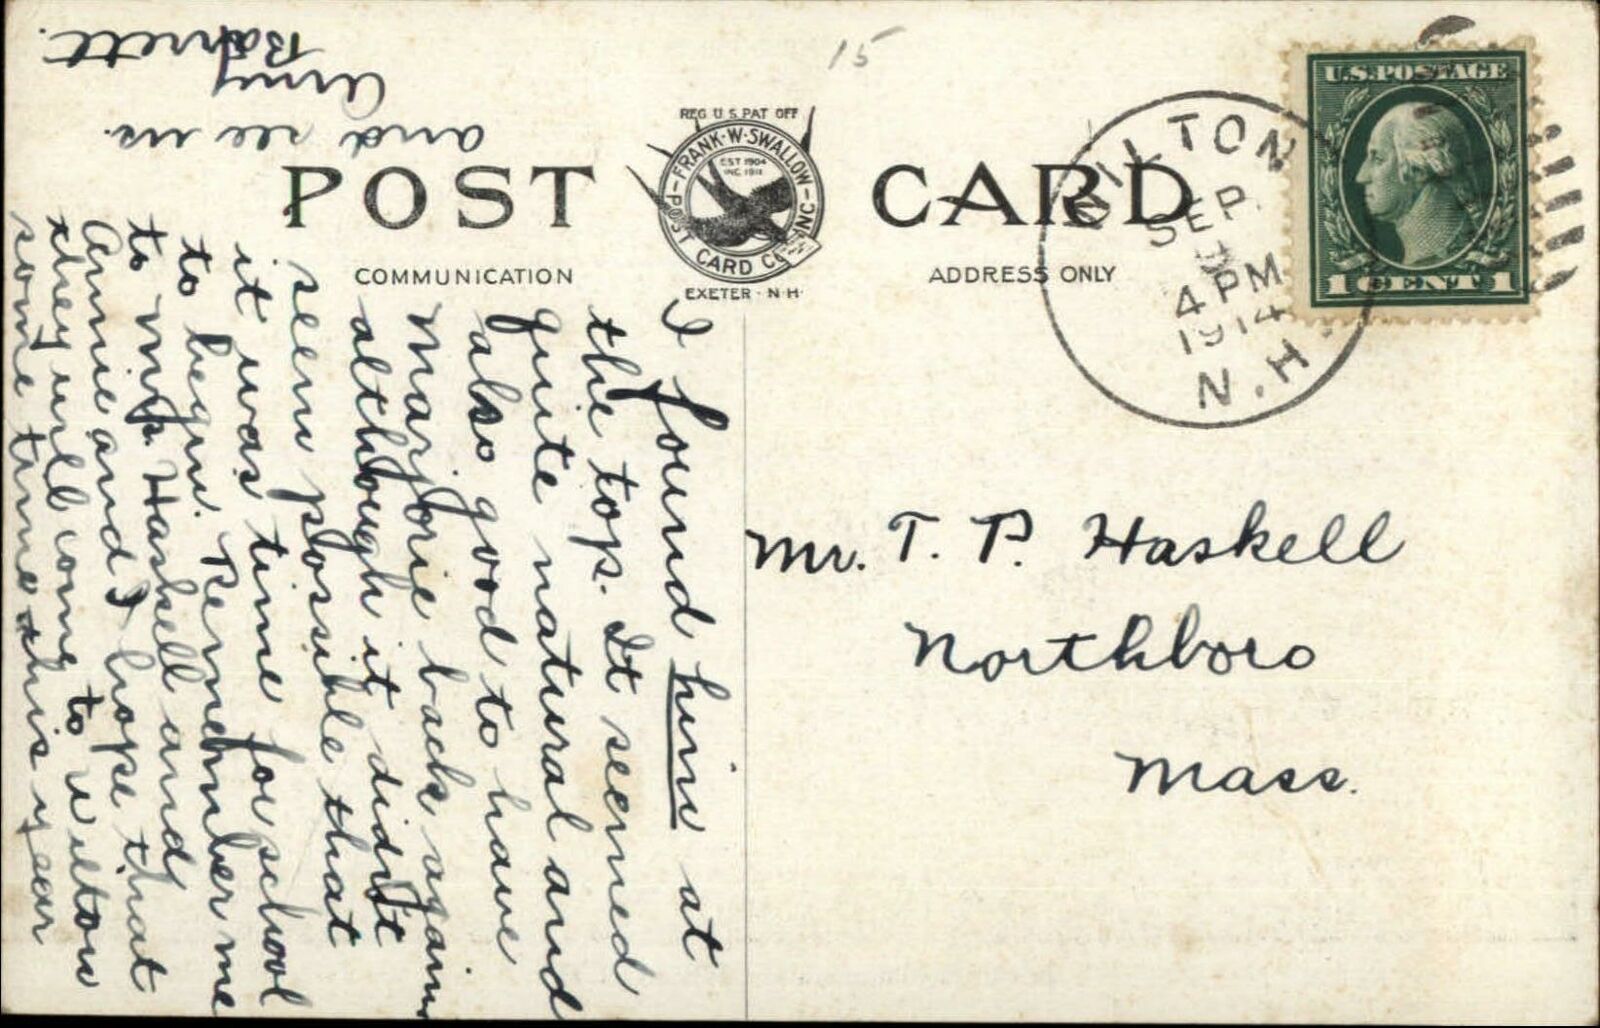 15
REG. U.S. PAT. OFF
FRANK·W·SWALLOW
EST 1904
INC. 1911
POST CARD CO. INC.
EXETER·N·H·
POST CARD
COMMUNICATION
ADDRESS ONLY
WILTON
SEP.
4 PM
1914
N.H.
U.S. POSTAGE
1 CENT 1
I found him at
the top. It seemed
quite natural and
also good to have
Marjorie back again
although it didn't
seem possible that
it was time for school
to begin. Remember me
to Mrs. Haskell and
Annie and I hope that
they will come to Wilton
some time this year
and see us.
Amy
Barrett.
Mr. T. P. Haskell
Northboro
Mass.